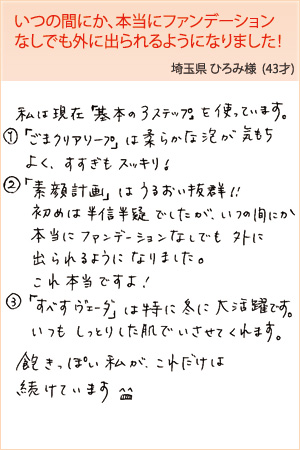 いつの間にか、本当にファンデーション
なしでも外に出られるようになりました！
埼玉県 ひろみ様 (43才)
私は現在「基本の3ステップ」を使っています。
①「ごまクリアソープ」は柔らかな泡が気もち
よく、すすぎもスッキリ!
②「素顔計画」はうるおい抜群!!
初めは半信半疑でしたが、いつの間にか
本当にファンデーションなしでも外に
出られるようになりました。
これ本当ですよ!
③「すべすヴェーダ」は特に冬に大活躍です。
いつもしっとりした肌でいさせてくれます。
飽きっぽい私が、これだけは
続けています